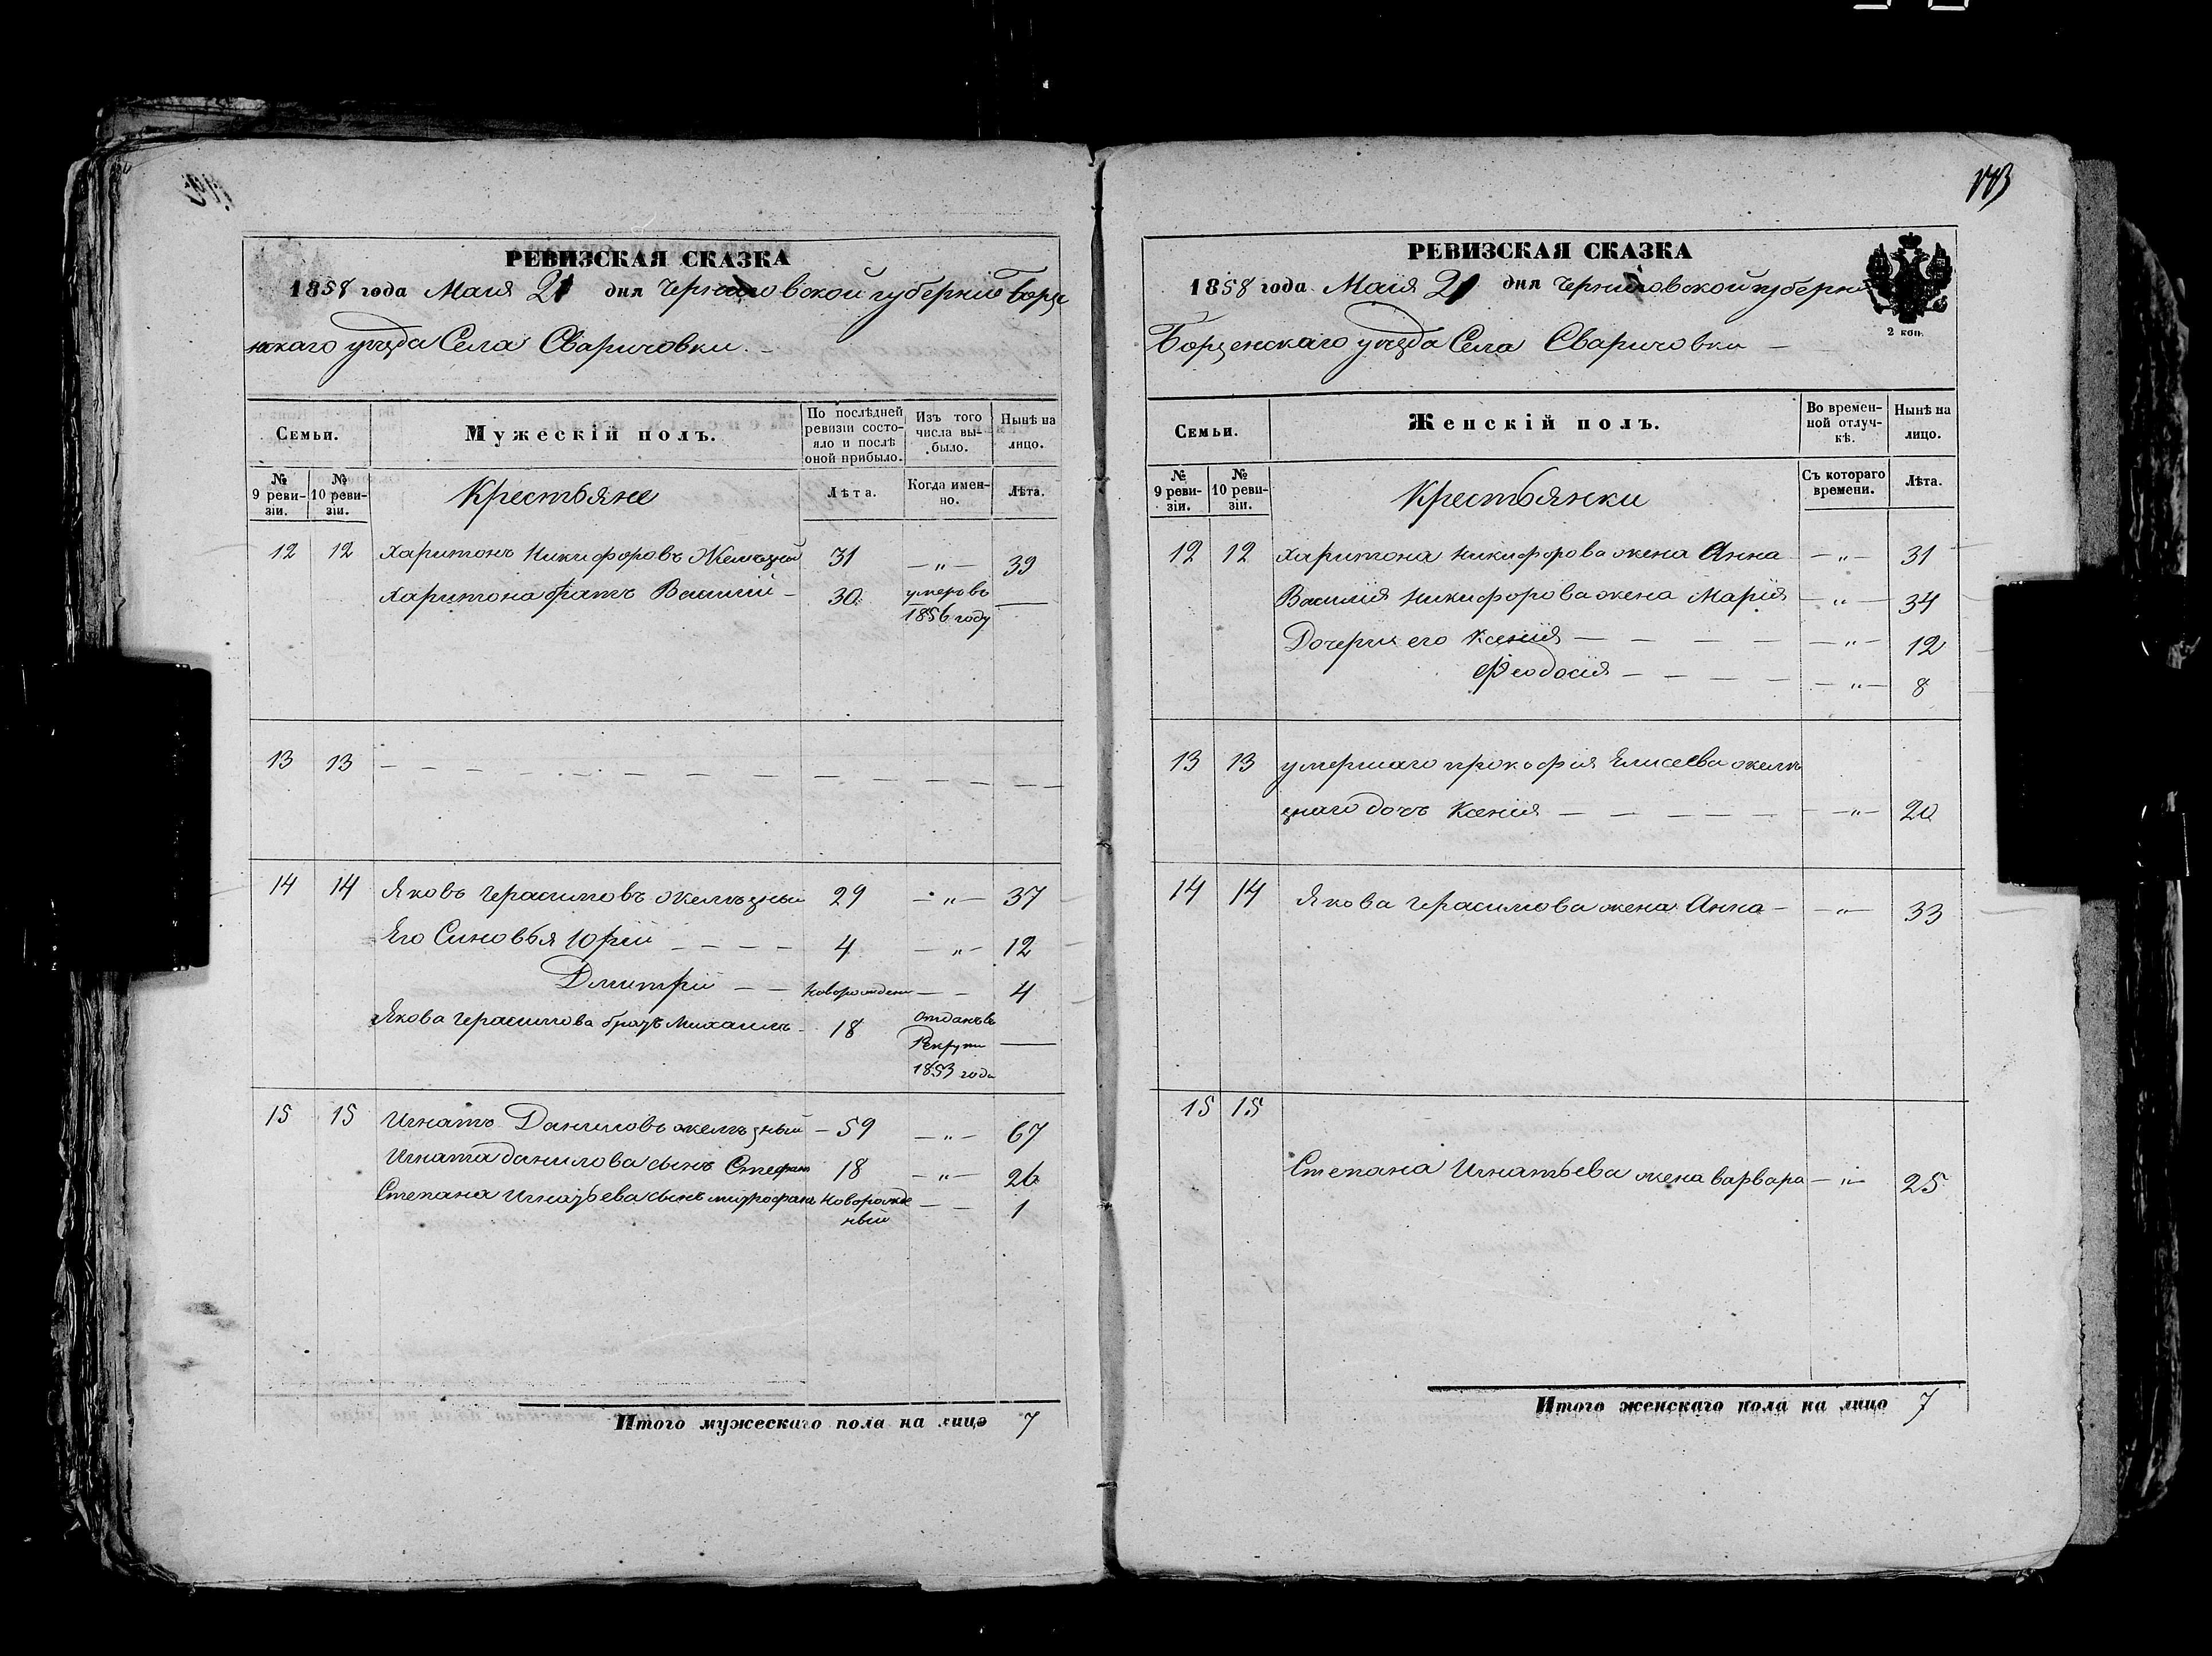 РЕВИЗСКАЯ СКАЗКА
1858 года Маія 21 дня Черниговской губерніи Борзе
нскаго уѣзда Села Сваричовки.
Семьи.
Мужескій полъ.
По послѣдней ревизіи состояло и послѣ оной прибыло.
Изъ того числа выбыло.
Нынѣ на лицо.
№ 9 ревизіи.
№ 10 ревизіи.
Крестьяне
Лѣта.
Когда именно.
Лѣта.
12 12 Харитонъ Никифоровъ Желѣзный 31 — „ — 39
Харитона братъ Василій 30 умеръ въ 1856 году —
13 13
14 14 Яковъ Герасимовъ желѣзный 29 — „ — 37
Его Синовья Юрій 4 — „ — 12
Дмитрій новорожден 4
Якова Герасимова братъ Михаилъ 18 отданъ въ Рекруты 1853 года —
15 15 Игнатъ Даниловъ желѣзный 59 — „ — 67
Игната данилова сынъ Стефан 18 — „ — 26
Степана Игнатьева сынъ митрофанъ новорожденый 1
Итого мужескаго пола на лицо 7
113
РЕВИЗСКАЯ СКАЗКА
1858 года Маія 21 дня Черниговской губерн
Борзенскаго уѣзда Села Сваричовки
2 коп.
Семьи.
Женскій полъ.
Во временной отлучкѣ.
Нынѣ на лицо.
№ 9 ревизіи.
№ 10 ревизіи.
Крестьянки
Съ котораго времени.
Лѣта.
12 12 Харитона Никифорова жена Анна — „ — 31
Василія Никифорова жена Марія — „ — 34
Дочери его Ксенія — „ — 12
Феодосія — „ — 8
13 13 умершаго прокофія Елисеева желѣ
знаго дочь Ксенія — „ — 20
14 14 Якова Герасимова жена Анна — „ — 33
15 15
Степана Игнатьева жена варвара — „ — 25
Итого женскаго пола на лицо 7